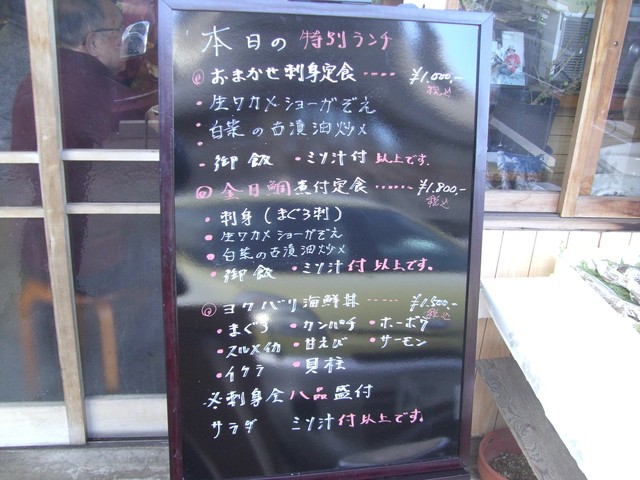 本日の 特別ランチ
◎ おまかせ刺身定食 ‥‥‥ ¥1,000,-
税込
・生ワカメショーガぞえ
・白菜の古漬油炒メ
・御飯 ・ミソ汁付 以上です.
◎ 金目鯛煮付定食 ‥‥‥ ¥1,800,-
税込
・刺身 (まぐろ刺)
・生ワカメショーガぞえ
・白菜の古漬油炒メ
・御飯 ・ミソ汁付 以上です。
◎ ヨクバリ海鮮丼 ‥‥‥ ¥1,500,-
税込
・まぐろ ・カンパチ ・ホーボウ
・スルメイカ ・甘えび ・サーモン
・イクラ ・貝柱
※刺身全八品盛付
サラダ ミソ汁付以上です。